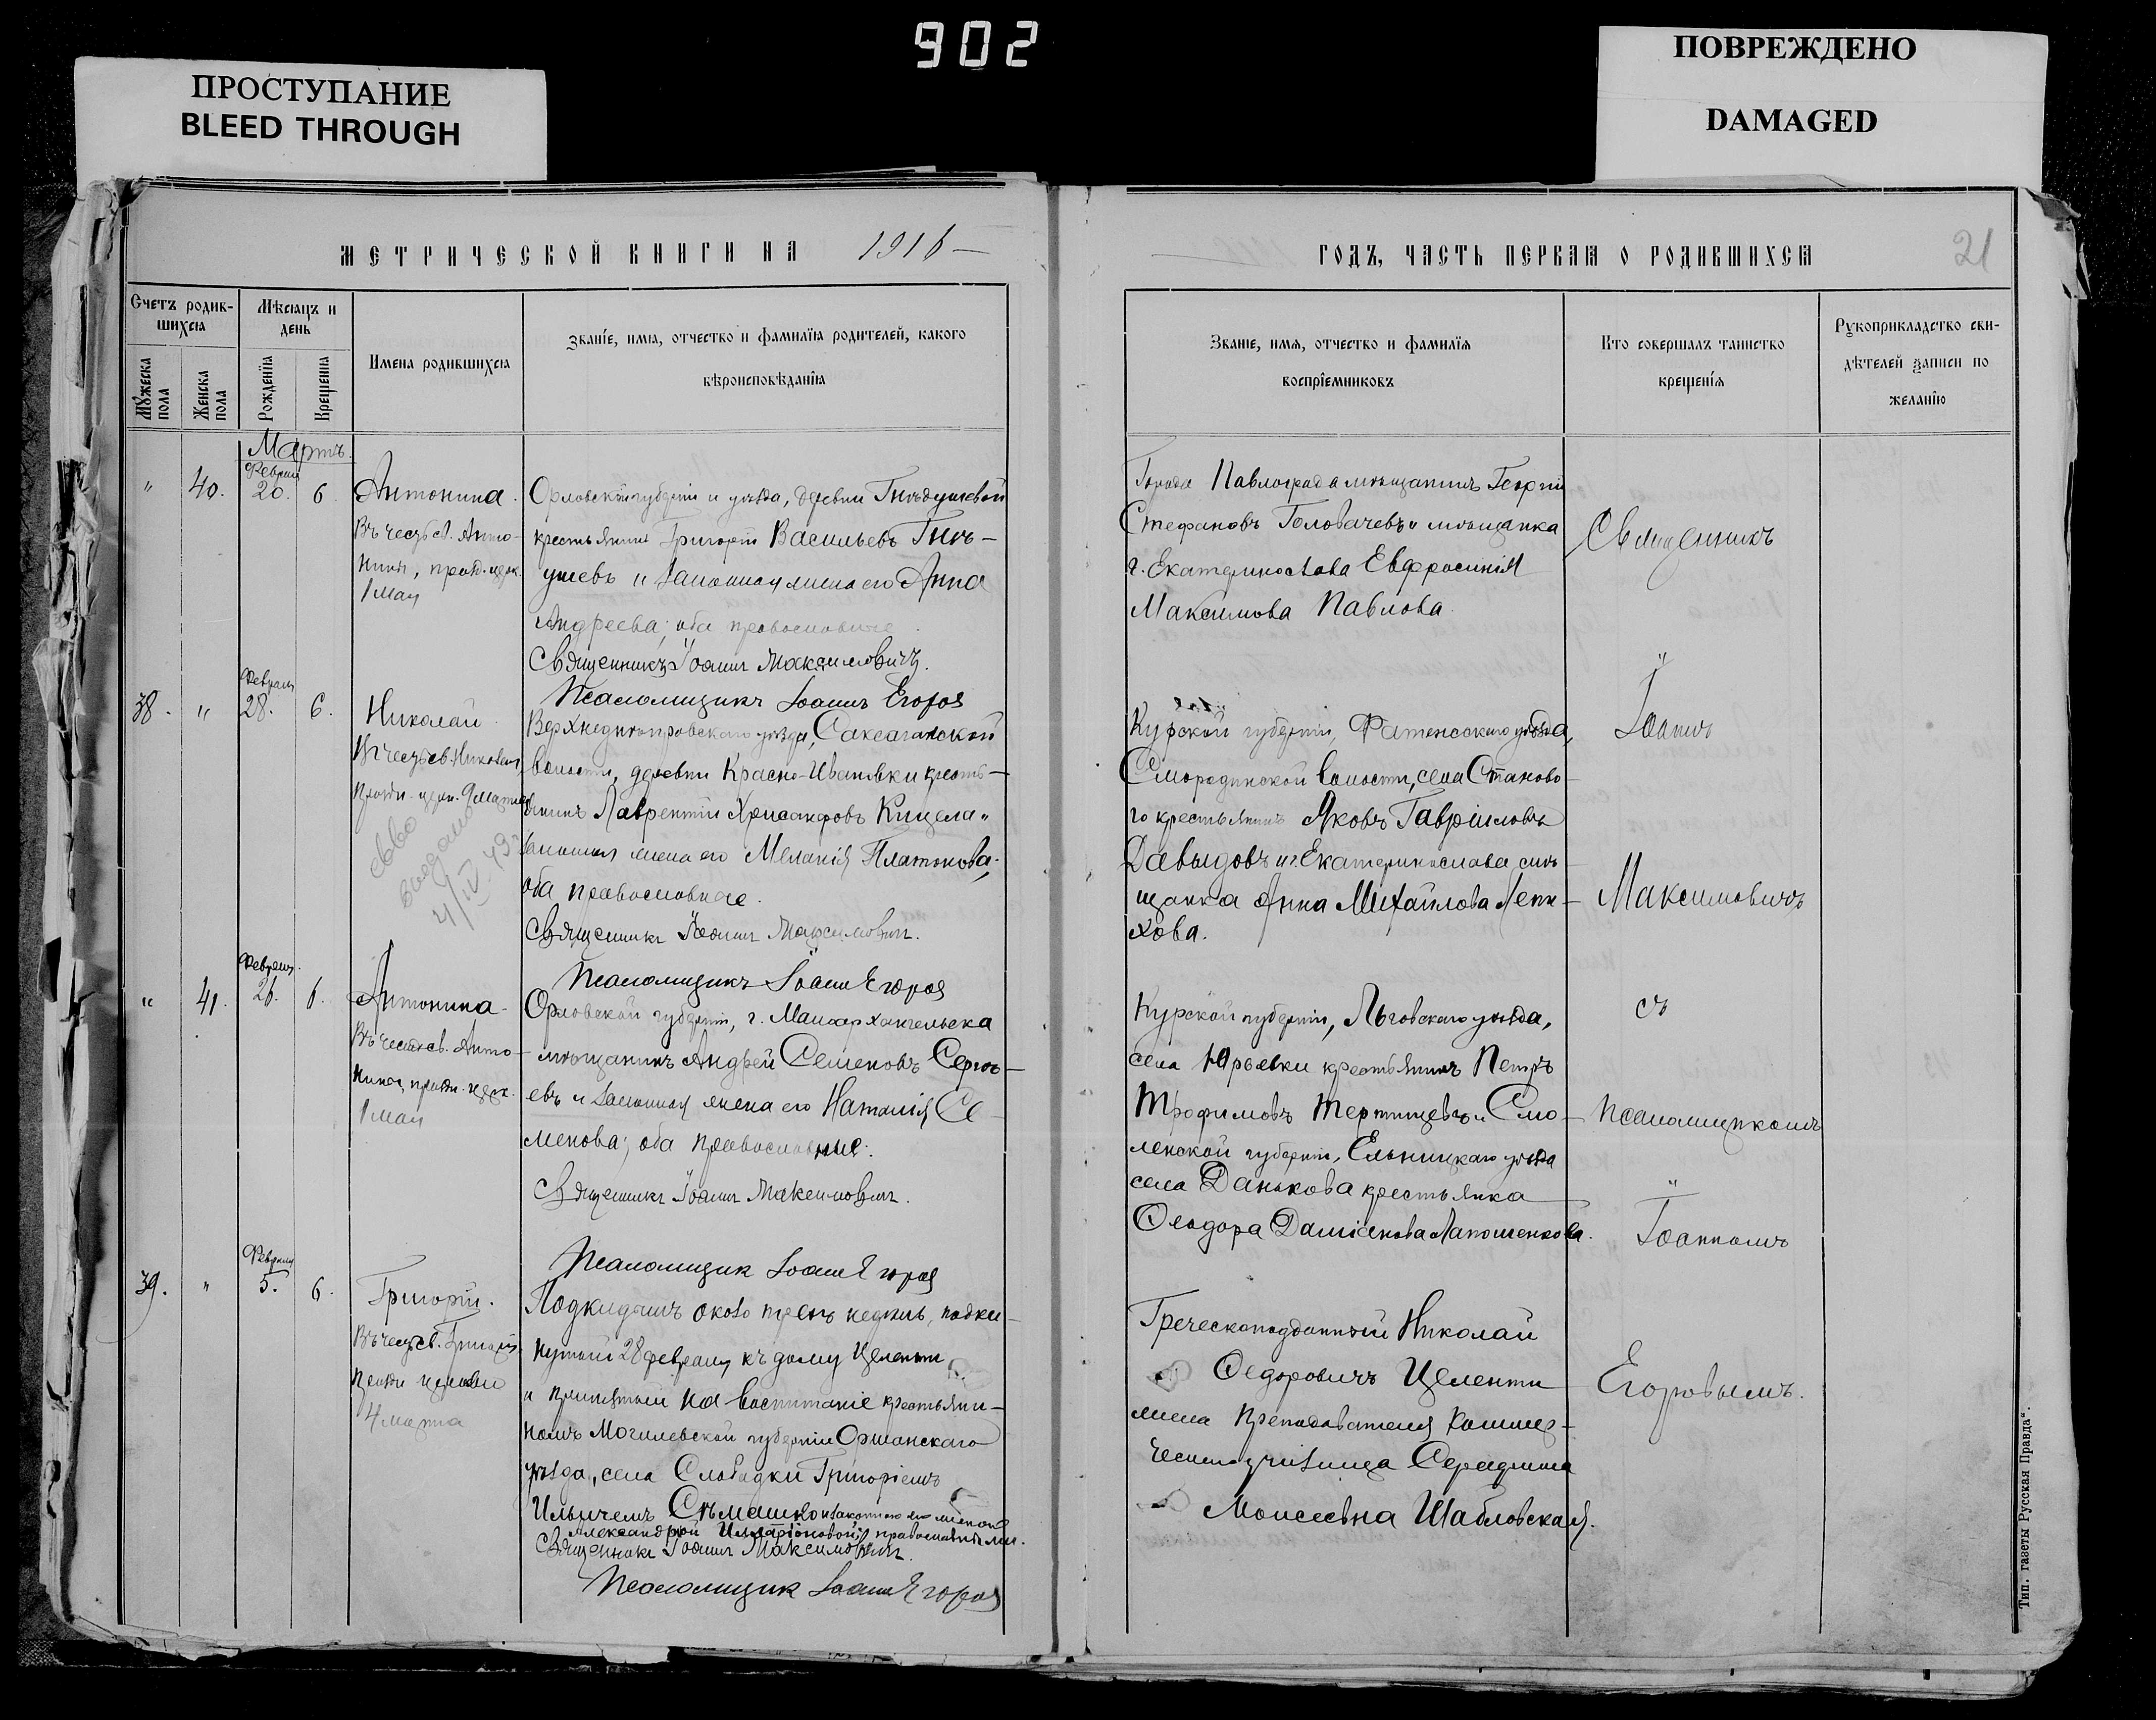 902
ПРОСТУПАНИЕ
BLEED THROUGH
ПОВРЕЖДЕНО
DAMAGED
МЕТРИЧЕСКОЙ КНИГИ НА 1916
Счетъ родив-
шихся
Мужеска
пола
Женска
пола
Мѣсяцъ и
день
Рожденія
Крещенія
Имена родившихся
Званіе, имя, отчество и фамилія родителей, какого
вѣроисповѣданія
Мартъ.
" 40. Февраля 20. 6
Антонина.
Въ честь св. Анто-
нины, празд. церк.
1 мая
Орловской губерніи и уѣзда, деревни Гнѣздушевой
крестьянинъ Григорій Васильевъ Гнѣ-
ушевъ и законная жена его Анна
Андреева; оба православные.
Священникъ Іоаннъ Максимовичъ.
Псаломщикъ Іоаннъ Егоров
38. " Февраля 28. 6.
Николай
Въ честь св. Николая
празд. церк. 9 марта
выдано
4/IV
Верхнеднѣпровскаго уѣзда, Саксаганской
волости, деревни Красно-Ивановки кресть-
янинъ Лаврентій Хрисанфовъ Кицела
законная жена его Меланія Платонова;
оба православные.
Священникъ Іоаннъ Максимович.
Псаломщикъ Іоанн Егоров
" 41. Февраля 26. 6.
Антонина
Въ честь св. Анто-
нины, празд. церк.
1 мая
Орловской губерніи, г. Малоархангельска
мѣщанинъ Андрей Семеновъ Сергѣ-
евъ и законная жена его Наталія Се-
менова; оба православные.
Священникъ Іоаннъ Максимович.
Псаломщик Іоанн Егоров
39. " Февраля 5. 6.
Григорій.
Въ честь св. Григорія
празд. церковью
4 марта
Подкидышъ около трехъ недѣль, подки-
нутый 28 февраля къ дому Целенти
и принятый на воспитаніе крестьяни-
номъ Могилевской губерніи Оршанскаго
уѣзда, села Слободки Григоріемъ
Ильичемъ Сѣмашко и законною его женою
Александрой Илларіоновой, православными.
Священникъ Іоаннъ Максимович.
Псаломщик Іоанн Егоров
ГОДЪ, ЧАСТЬ ПЕРВАЯ О РОДИВШИХСЯ
21
Званіе, имя, отчество и фамилія
воспріемниковъ
Кто совершалъ таинство
крещенія
Рукоприкладство сви-
дѣтелей записи по
желанію
Города Павлограда мѣщанинъ Георгій
Стефановъ Головачевъ и мѣщанка
г. Екатеринослава Евфросинія
Максимова Павлова.
Курской губерніи, Фатежскаго уѣзда,
Смородинской волости, села Станово-
го крестьянинъ Яковъ Гавріиловъ
Давыдовъ и г. Екатеринослава мѣ-
щанка Анна Михайлова Лепи-
хова.
Курской губерніи, Льговскаго уѣзда,
села Юрьевки крестьянинъ Петръ
Трофимовъ Тертищевъ и Смо-
ленской губерніи, Ельницкаго уѣзда
села Данькова крестьянка
Ѳеодора Даміанова Лапошенкова.
Греческоподданный Николай
Ѳедоровичъ Целенти
жена преподавателя Коммер-
ческаго училища Серафима
Моисеевна Шабловская.
Священникъ
Іоаннъ
Максимовичъ
съ
псаломщикомъ
Іоанномъ
Егоровымъ.
Тип. газеты Русская Правда".